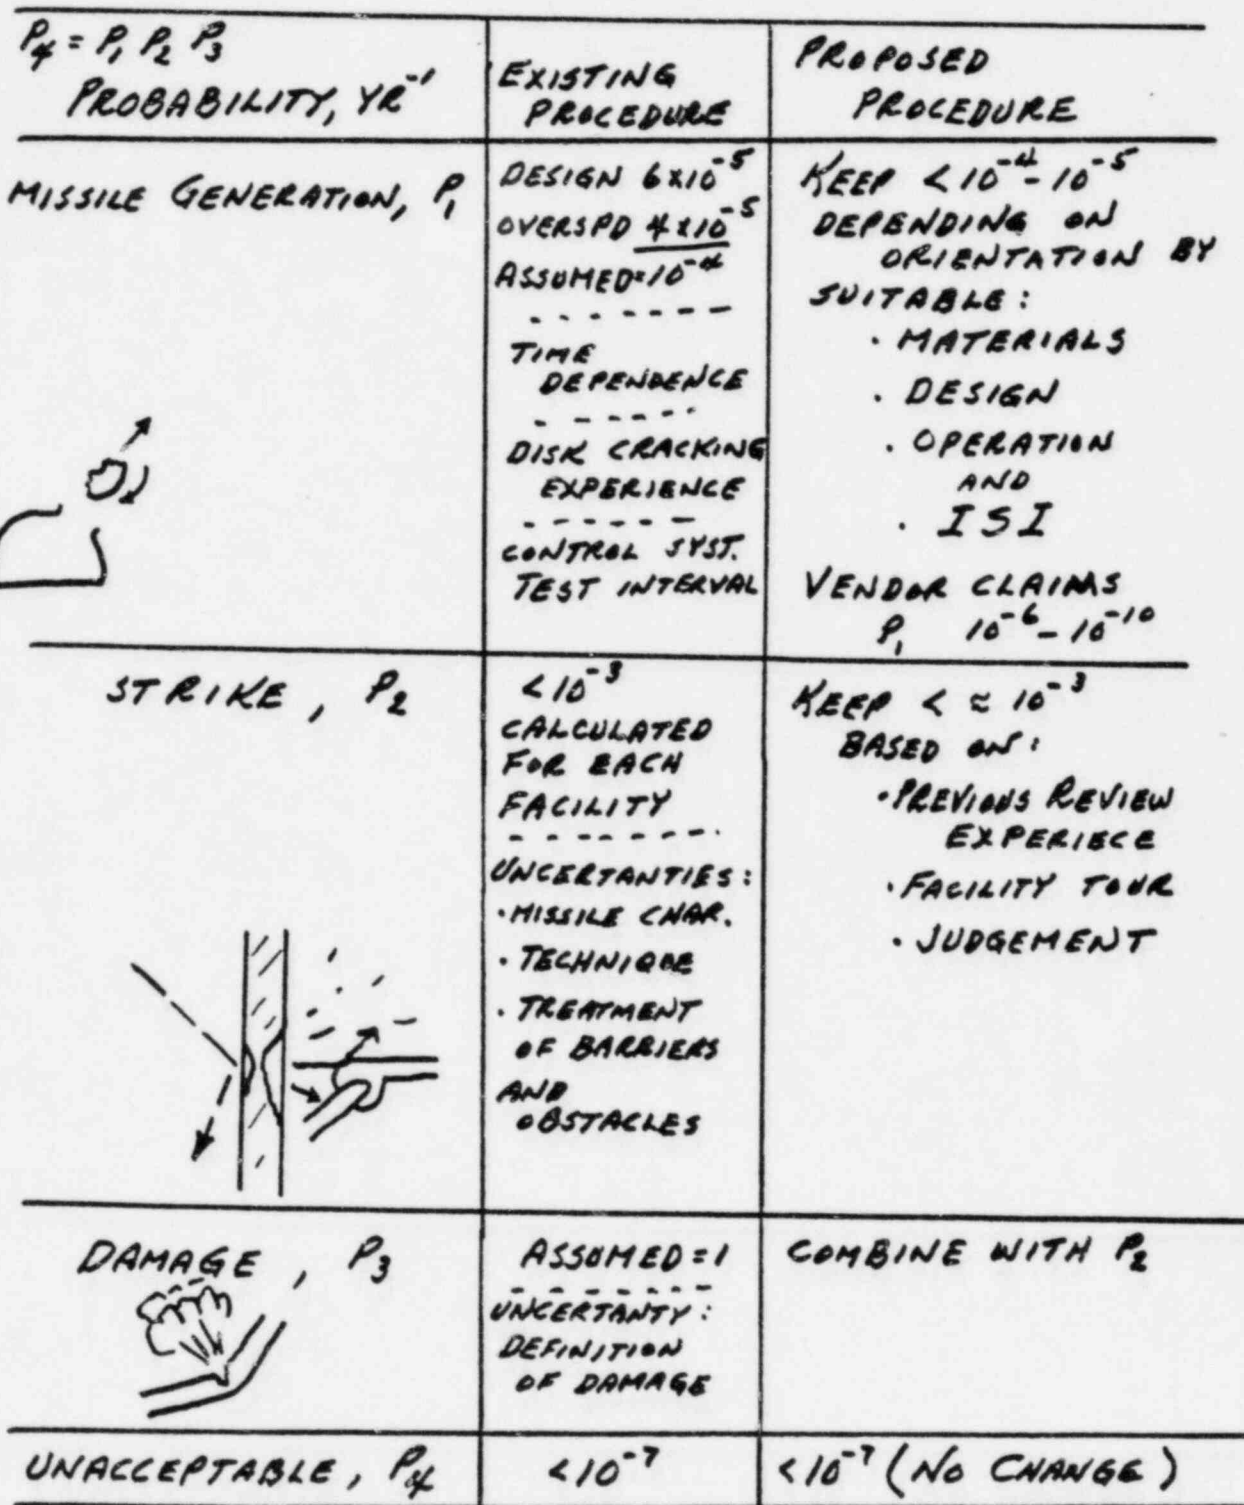 P₄ = P₁ P₂ P₃
PROBABILITY, YR⁻¹
EXISTING
PROCEDURE
PROPOSED
PROCEDURE
MISSILE GENERATION, P₁
DESIGN 6x10⁻⁵
OVERSPD 4x10⁻⁵
ASSUMED=10⁻⁴
TIME
DEPENDENCE
DISK CRACKING
EXPERIENCE
CONTROL SYST.
TEST INTERVAL
KEEP < 10⁻⁴-10⁻⁵
DEPENDING ON
ORIENTATION BY
SUITABLE:
· MATERIALS
· DESIGN
· OPERATION
AND
· ISI
VENDOR CLAIMS
P₁ 10⁻⁶-10⁻¹⁰
STRIKE, P₂
<10⁻³
CALCULATED
FOR EACH
FACILITY
UNCERTANTIES:
· MISSILE CHAR.
· TECHNIQUE
· TREATMENT
OF BARRIERS
AND
OBSTACLES
KEEP < ≈ 10⁻³
BASED ON:
· PREVIOUS REVIEW
EXPERIECE
· FACILITY TOUR
· JUDGEMENT
DAMAGE, P₃
ASSUMED=1
UNCERTANTY:
DEFINITION
OF DAMAGE
COMBINE WITH P₂
UNACCEPTABLE, P₄
<10⁻⁷
<10⁻⁷ (NO CHANGE)